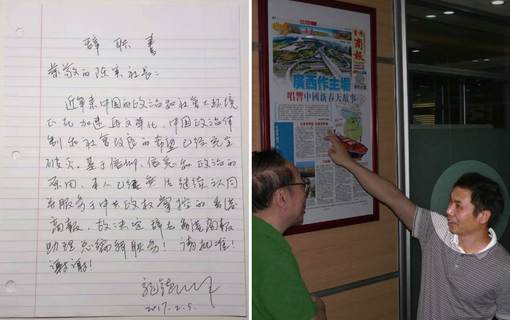 辞职书
尊敬的陈寅社长:
近年来中国的政治和社会大环境
正在加速再文革化,中国政治体
制和社会改良的希望已经完全
破灭。基于信仰、信念和政治的
原因,本人已经无法继续认同
和服务于中共政权掌控的香港
商报,故决定辞去香港商报
助理总编辑职务!请批准!
谢谢!
2017.2.5.
商報
廣西作主場
唱響中國新春大故事